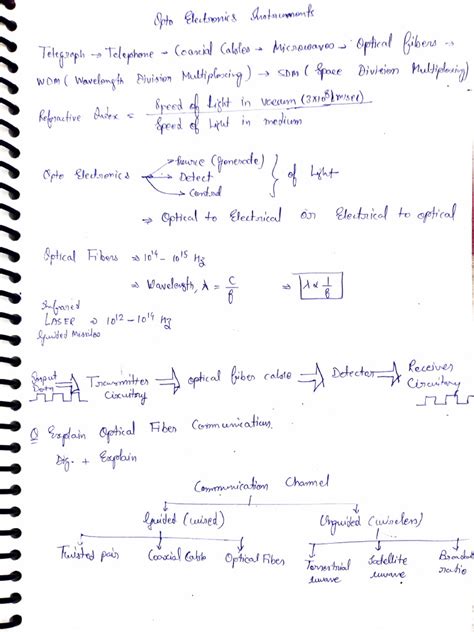 Opto Electronics Instruments
Telegraph → Telephone → Coaxial Cables → Microwaves → Optical fibers →
WDM (Wavelength Division Multiplexing) → SDM (Space Division Multiplexing)
Refractive Index = Speed of Light in vacuum (3x10⁸ m/sec)
Speed of Light in medium
Opto Electronics → Source (generate)
→ Detect } of Light
→ Control
⇒ Optical to Electrical or Electrical to optical
Optical Fibers ⇒ 10¹⁴ – 10¹⁵ Hz
⇒ Wavelength, λ = C/f ⇒ λ ∝ 1/f
Infrared
LASER ⇒ 10¹² – 10¹⁴ Hz
Guided
Input Data ⇒ Transmitter Circuitry ⇒ optical fiber cable ⇒ Detector ⇒ Receiver Circuitry
Q Explain Optical Fiber Communication.
Dig. + Explain
Communication Channel
Guided (wired) Unguided (wireless)
Twisted pair Coaxial Cable Optical Fiber Terrestrial wave Satellite wave